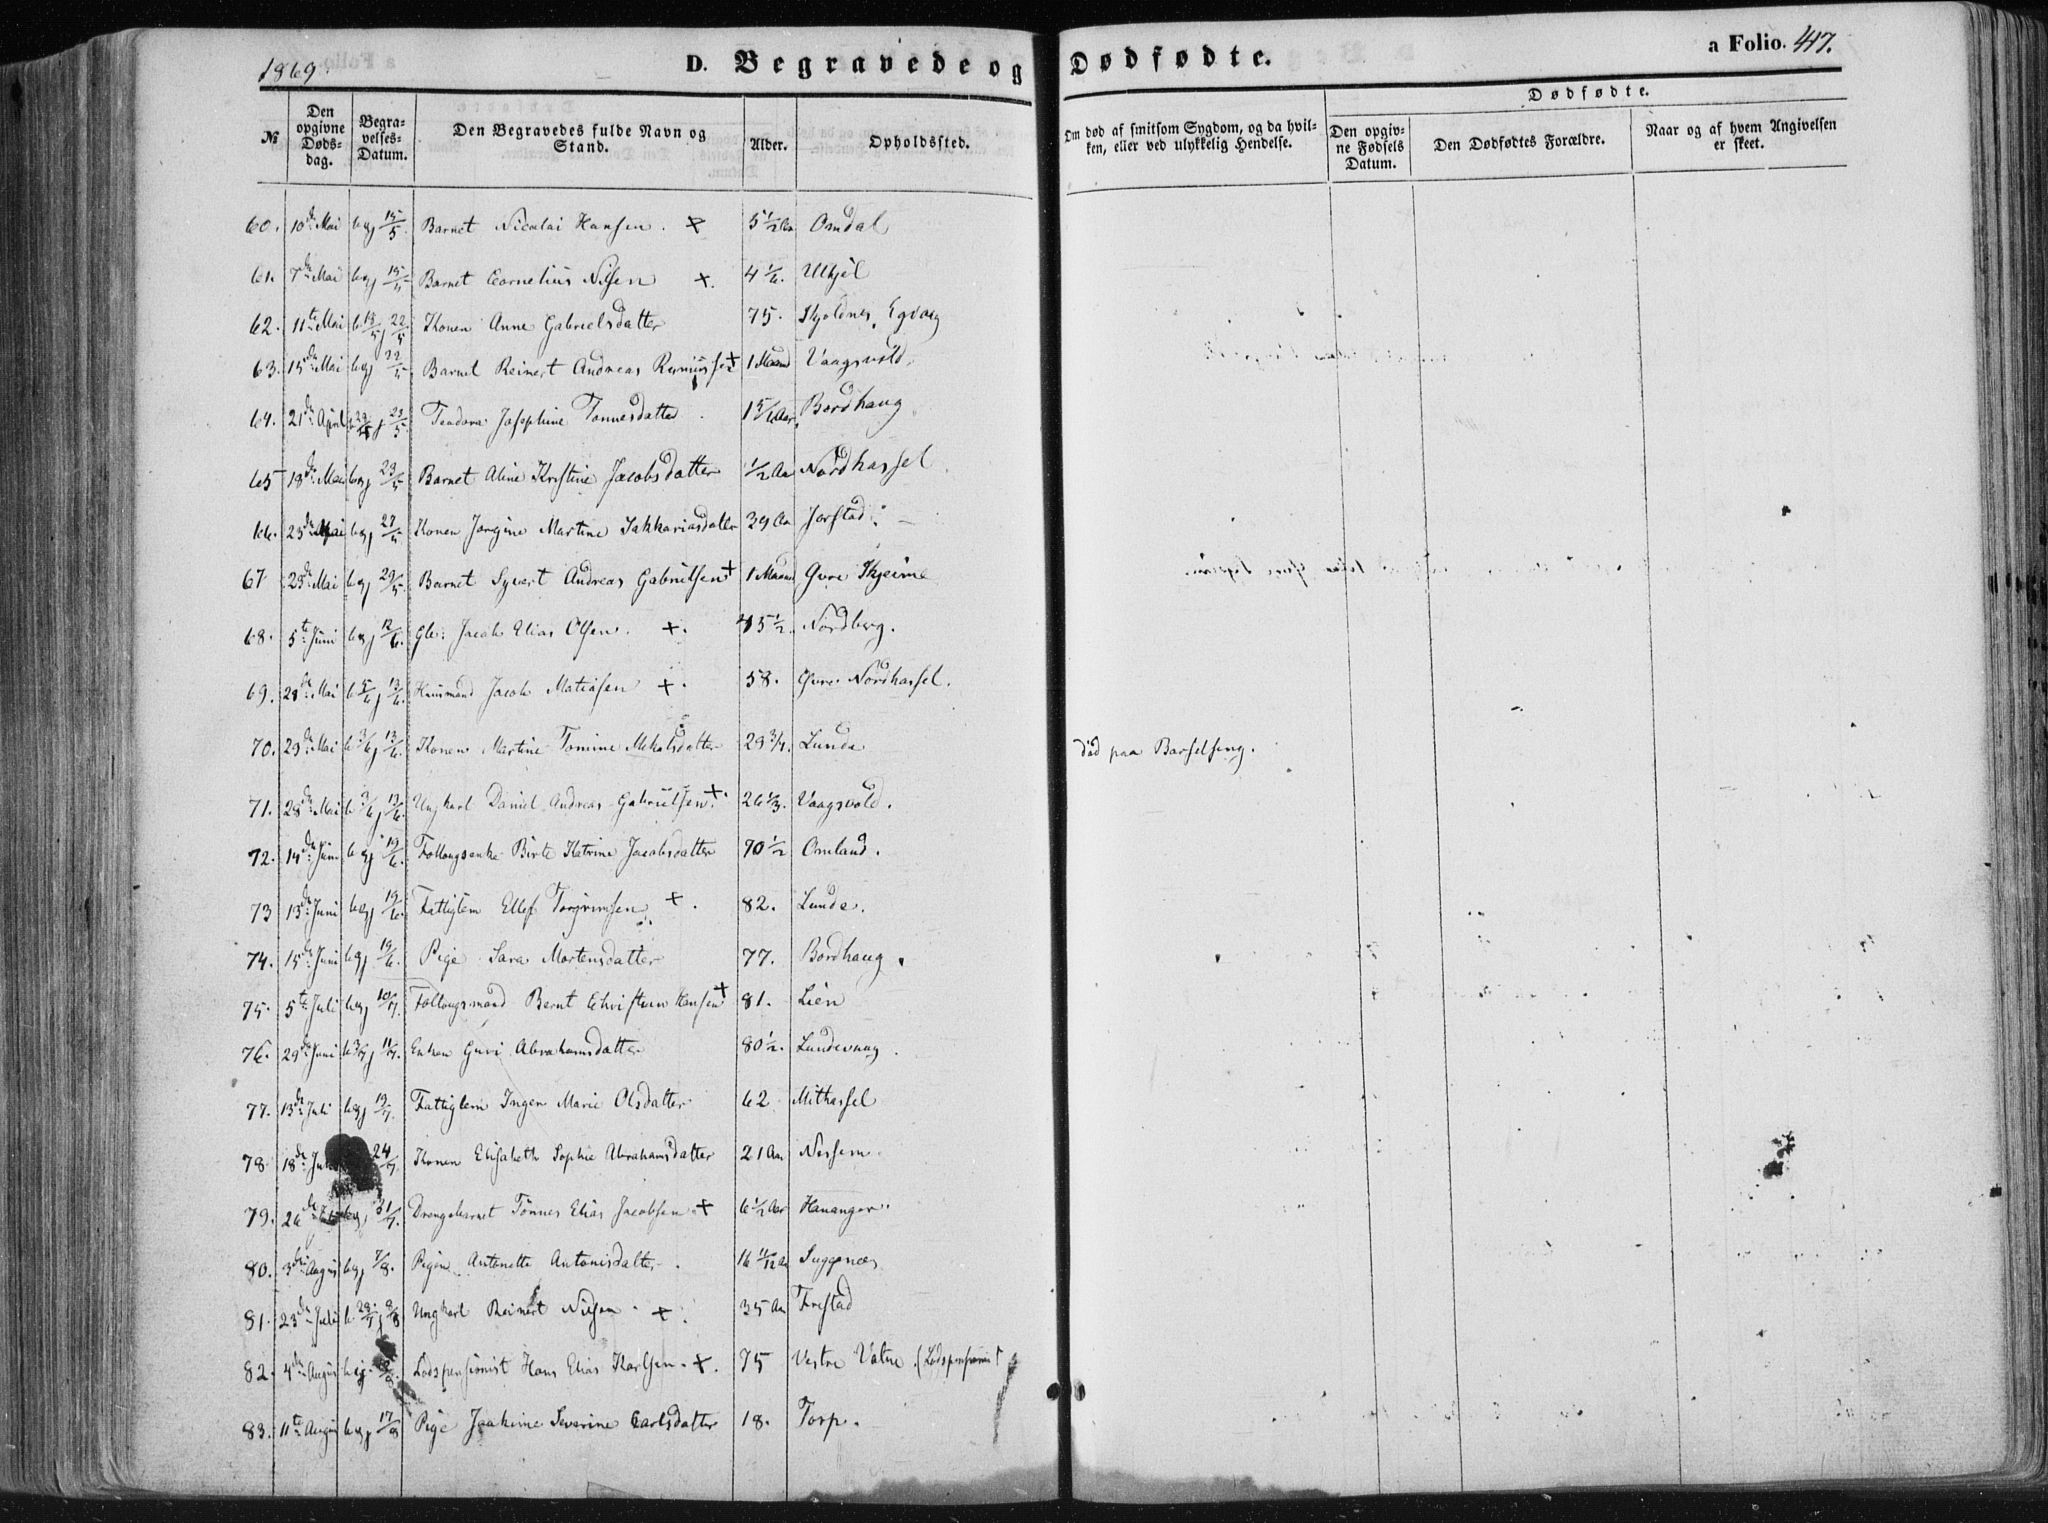 1869.
D. Begravede og Dødfødte.
a Folio. 417.
№
Den opgivne Døds-dag.
Begra-velses-Datum.
Den Begravedes fulde Navn og Stand.
Alder.
Opholdssted.
Om død af smitsom Sygdom, og da hvil-ken, eller ved ulykkelig Hendelse.
Dødfødte.
Den opgiv-ne Fødsels Datum.
Den Dødfødtes Forældre.
Naar og af hvem Angivelsen er skeet.
60. 10de Mai b og j 15/5 Barnet Nicolai Hansen. + 5 1/2 Aar Omdal
61. 7de Mai b og j 15/5 Barnet Cornelius Nilsen +. 4 1/6. Ulgjel
62. 11te Mai b 13/5 j 22/5 Konen Anne Gabrielsdatter 75. Skjoldnes, Egvaag
63. 15de Mai b og j 22/5 Barnet Reinert Andreas Rasmussen + 1 Maaned Vaagsvold.
64. 21de April b j 23/5 Teodora Josephine Tonnesdatter 1 5/12 Aar. Bordhaug
65 18de Mai b og j 23/5 Barnet Aline Kristine Jacobsdatter 1/2 Aar Nordhassel
66. 23de Mai b og j 27/5 Konen Jorgine Martine Sakkariasdatter 39 Aar Jorstad.
67 25de Mai b og j 29/5 Barnet Syvert Andreas Gabrielsen + 1 Maaned Øvre Skjeime
68. 5te Juni b og j 12/6. Gle: Jacob Elias Olsen. +. 75 1/2. Nordberg.
69. 28de Mai b 5/6 j 13/6 Huusmand Jacob Matiasen +. 58. Øvre Nordhassel.
70. 29de Mai b 3/6 j 13/6. Konen Martine Tomine Mikalsdatter 29 3/4. Lunde død paa Barselseng.
71. 28de Mai b 3/6 j 13/6. Ungkarl Daniel Andreas Gabrielsen +. 26 1/3. Vaagsvold.
72. 14de Juni b og j 19/6. Follougsenke Birte Katrine Jacobsdatter 70 1/2 Omland.
73 13de Juni b og j 19/6. Fattiglem Ellef Torgrimsen +. 82. Lunde.
74. 15de Juni b og j 19/6. Pige Sara Mortensdatter 77. Bordhaug.
75. 5te Juli b og j 10/7. Follougsmand Bernt Christian Hansen + 81. Lien
76. 29de Juni b 3/7 j 11/7. Enken Guri Abrahamsdatter 80 1/2. Lundevaag.
77. 13de Juli b og j 19/7. Fattiglem Inger Marie Olsdatter 62 Mithassel
78 18de Juli 24/7 Konen Elisabeth Sophie Abrahamsdatter 21 Aar Nessem
79. 26de b og j 31/7. Drengebarnet Tönnes Elias Jacobsen + 6 1/2 Aar Hananger.
80. 3die August b og j 7/8. Pigen Antonette Antonisdatter. 16 11/12 Aar Suggenæs
81. 23de Juli b 28/7 j 8/8 Ungkarl Reinert Nilsen + 35 Aar Frestad
82. 4de August b og j 8/8. Lodspensionist Hans Elias Karlsen. +. 75 Vestre Vatne (Lodspensionist
83. 11te August b og j 17/8 Pige Joakime Severine Carlsdatter 18. Torp.